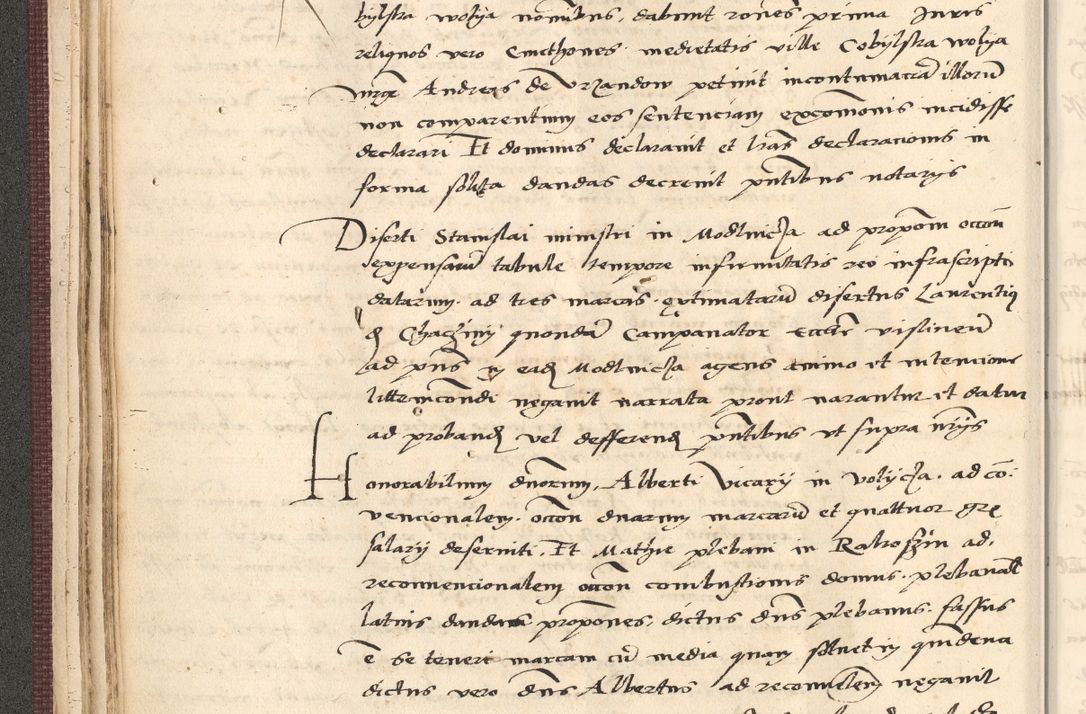 bylska wolya nominibus, dabunt rones prima Juris
reliquos vero Cmethones medietatis ville Cobylska wolya
Andreas de Vrzandow petiuit in contumaciam illorum
non comparentium eos sententiam excommonis incidisse
declarari Et dominus declarauit et lras declaracionis in
forma solita dandas decreuit pntibus notarys
Diserti Stanislai ministri in Modlnicza ad propom occom
expensarum tabule tempore infirmitatis reo infrascripto
datarum ad tres marcas extimatarum disertus Laurentius
de quondam Campanator Eccle
ad pns in ead Modlnicza agens animo et intencione
litem negauit narrata prout narantur et datur
ad proband vel defferend pntibus vt supra nrys
Honorabilium dnorum, Alberti Vicary in Volycza. ad co:
vencionalem occom duarum marcarum et quattuor gr
salary deseruiti, Et Mathie plebani in ad,
reconuencionalem occom combustionis domus plebanal
latius dandas propones, dictus dns plebanus fassus
e se teneri marcam cum media quam soluet in quindena
dictus vero dns Albertus ad reconualem negauit